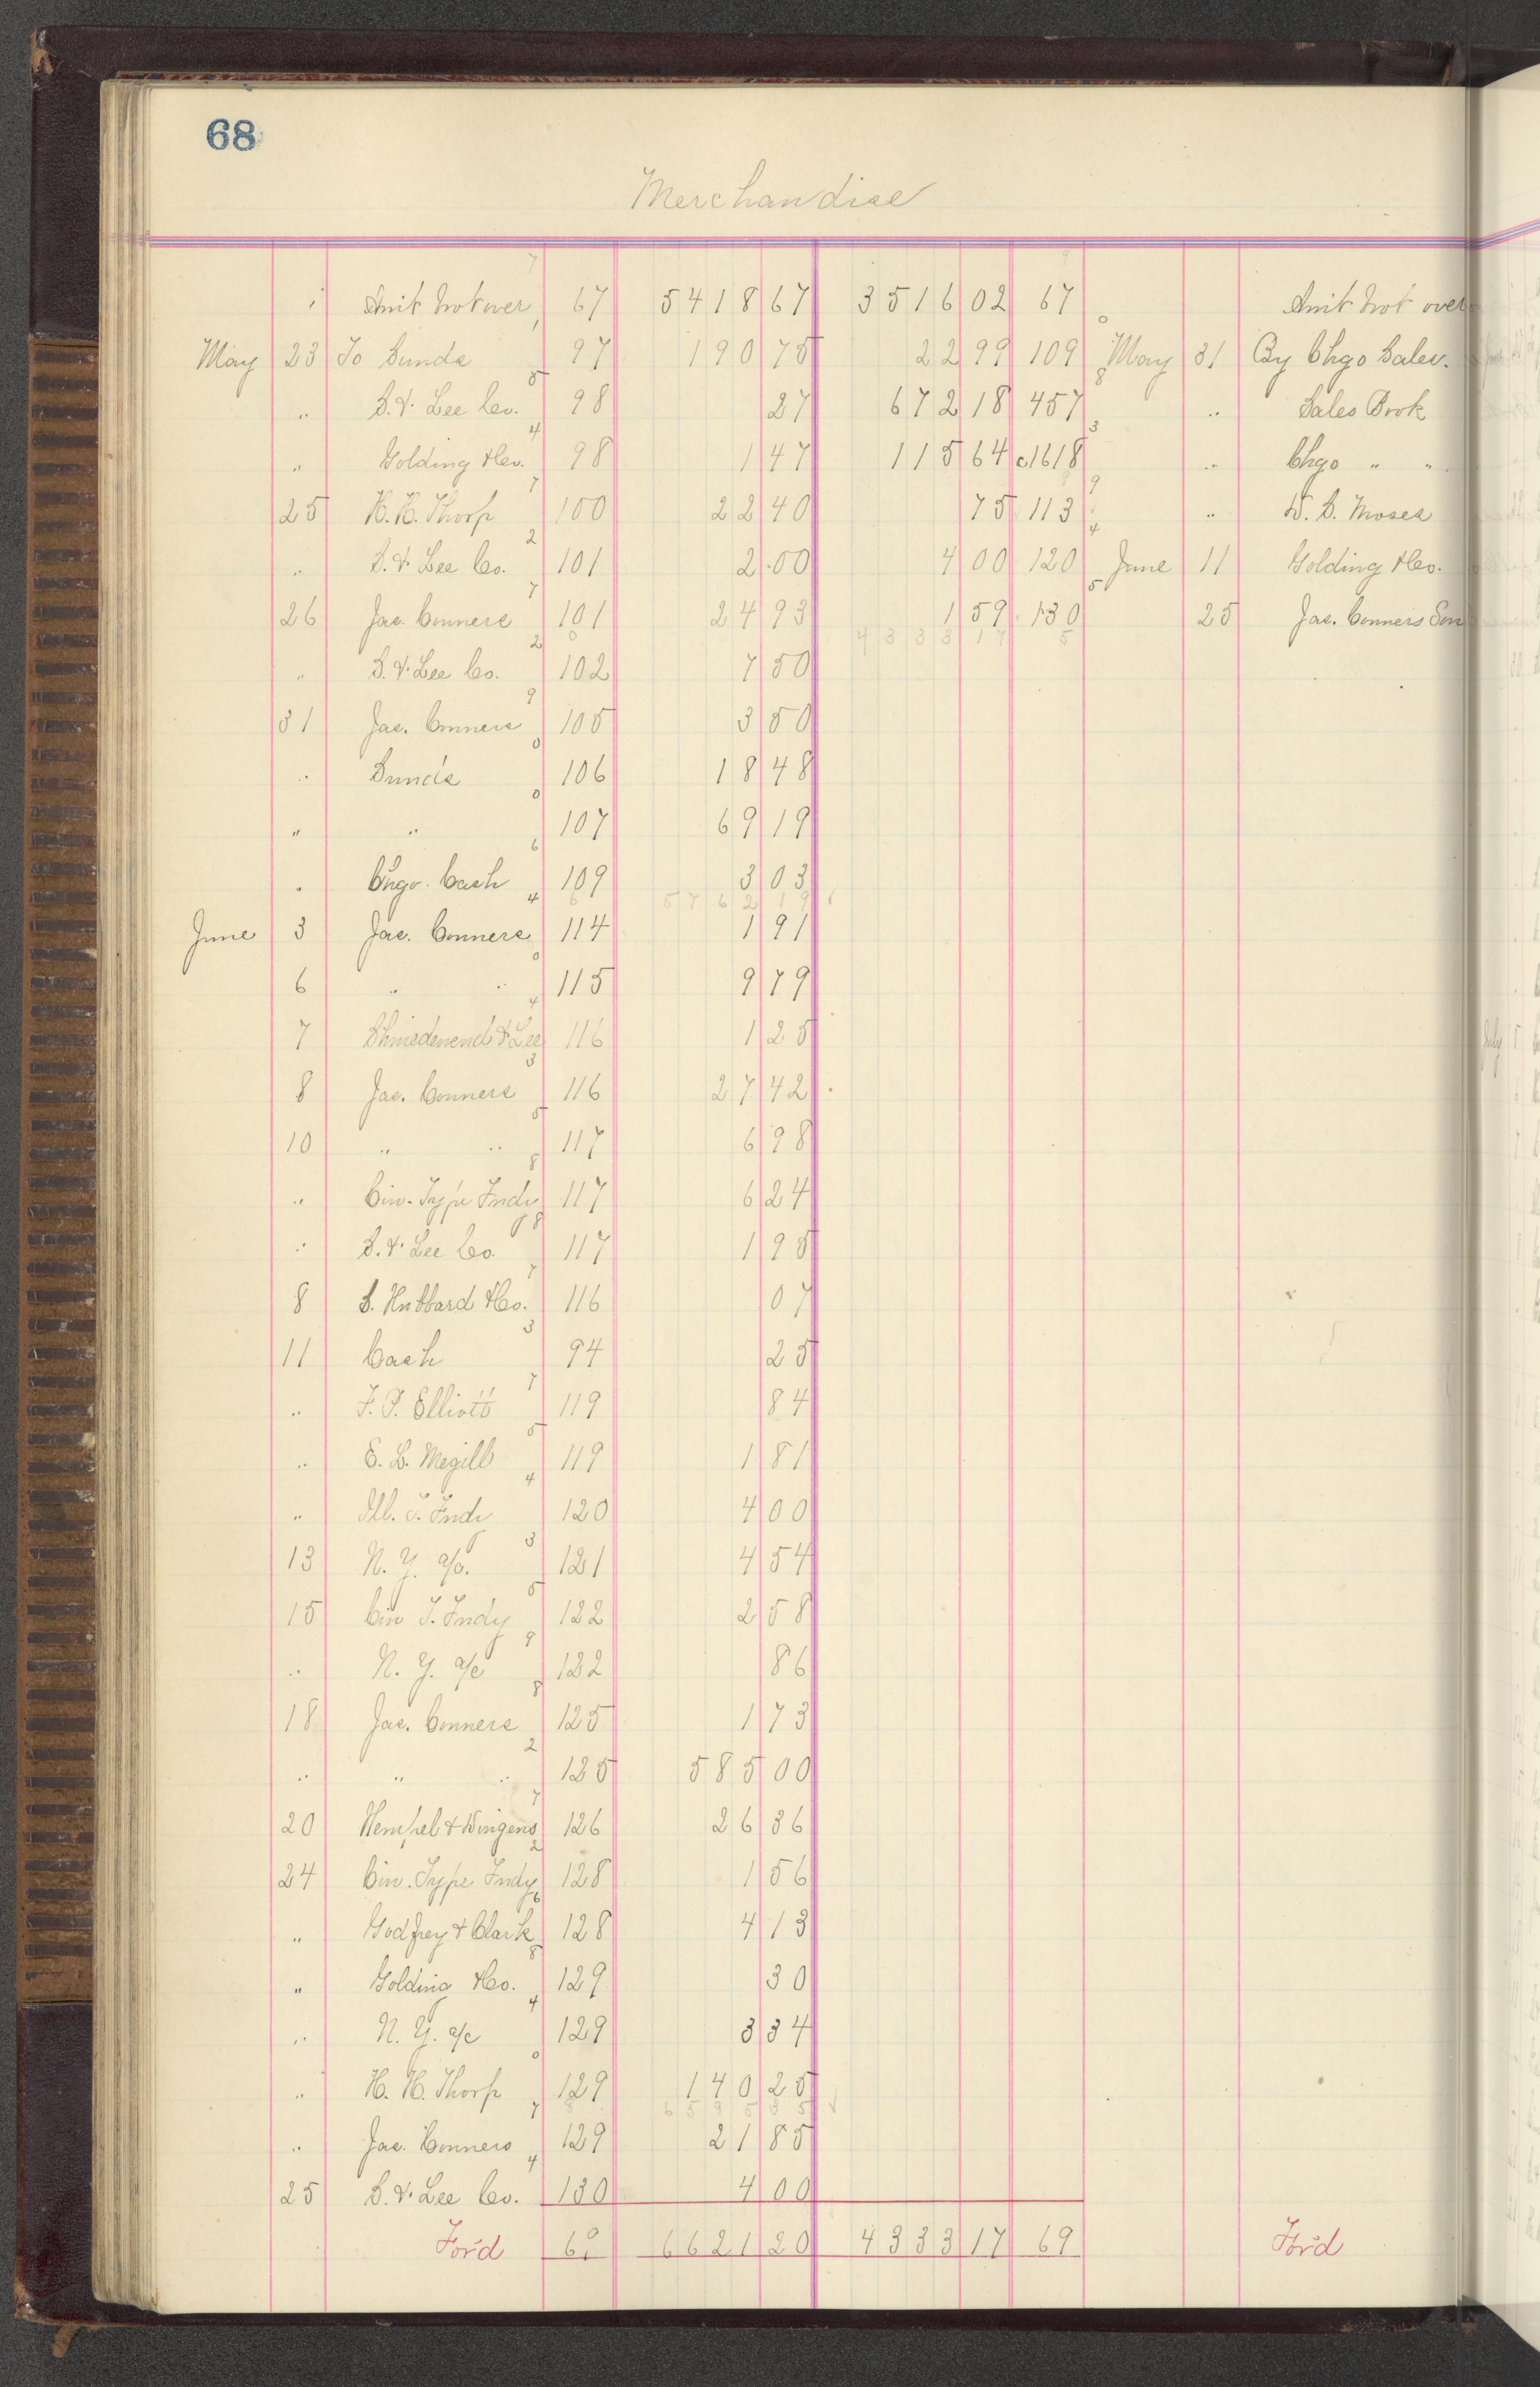 68
Merchandise
" Amt brot over 67 5418 67 3516 02 67 Amt brot over
May 23 To Sunds 97 190 75 22 99 109 May 31 By Chgo Sales.
" S. & Lee Co. 98 27 672 18 457 " Sales Book
" Golding & Co. 98 1 47 115 64 c1618 " Chgo " "
25 H. H. Thorp 100 22 40 75 113 " W. B. Moses
" S. & Lee Co. 101 2 00 4 00 120 June 11 Golding & Co.
26 Jas. Conners 101 24 93 1 59 130 25 Jas. Conners Son
4333 17
" S. & Lee Co. 102 7 50
31 Jas. Conners 105 3 50
" Sunds 106 18 48
" " 107 69 19
" Chgo. Cash 109 3 03
5762 19
June 3 Jas. Conners 114 1 91
6 " " 115 9 79
7 Shniedewend & Lee 116 1 25
8 Jas. Conners 116 27 42
10 " " 117 6 98
" Cin. Type Fndy 117 6 24
" S. & Lee Co. 117 1 95
8 S. Hubbard & Co. 116 07
11 Cash 94 25
" F. P. Elliott 119 84
" E. L. Megill 119 1 81
" Ill. T. Fndy 120 4 00
13 N. Y. a/c. 121 4 54
15 Cin T. Fndy 122 2 58
" N. Y. a/c 122 86
18 Jas. Conners 125 1 73
" " " 125 585 00
20 Hempel & Dingens 126 26 36
24 Cin. Type Fndy 128 1 56
" Godfrey & Clark 128 4 13
" Golding & Co. 129 30
" N. Y. a/c 129 3 34
" H. H. Thorp 129 140 25
6595 35
" Jas. Conners 129 21 85
25 S. & Lee Co. 130 4 00
For'd 69 6621 20 4333 17 69 For'd